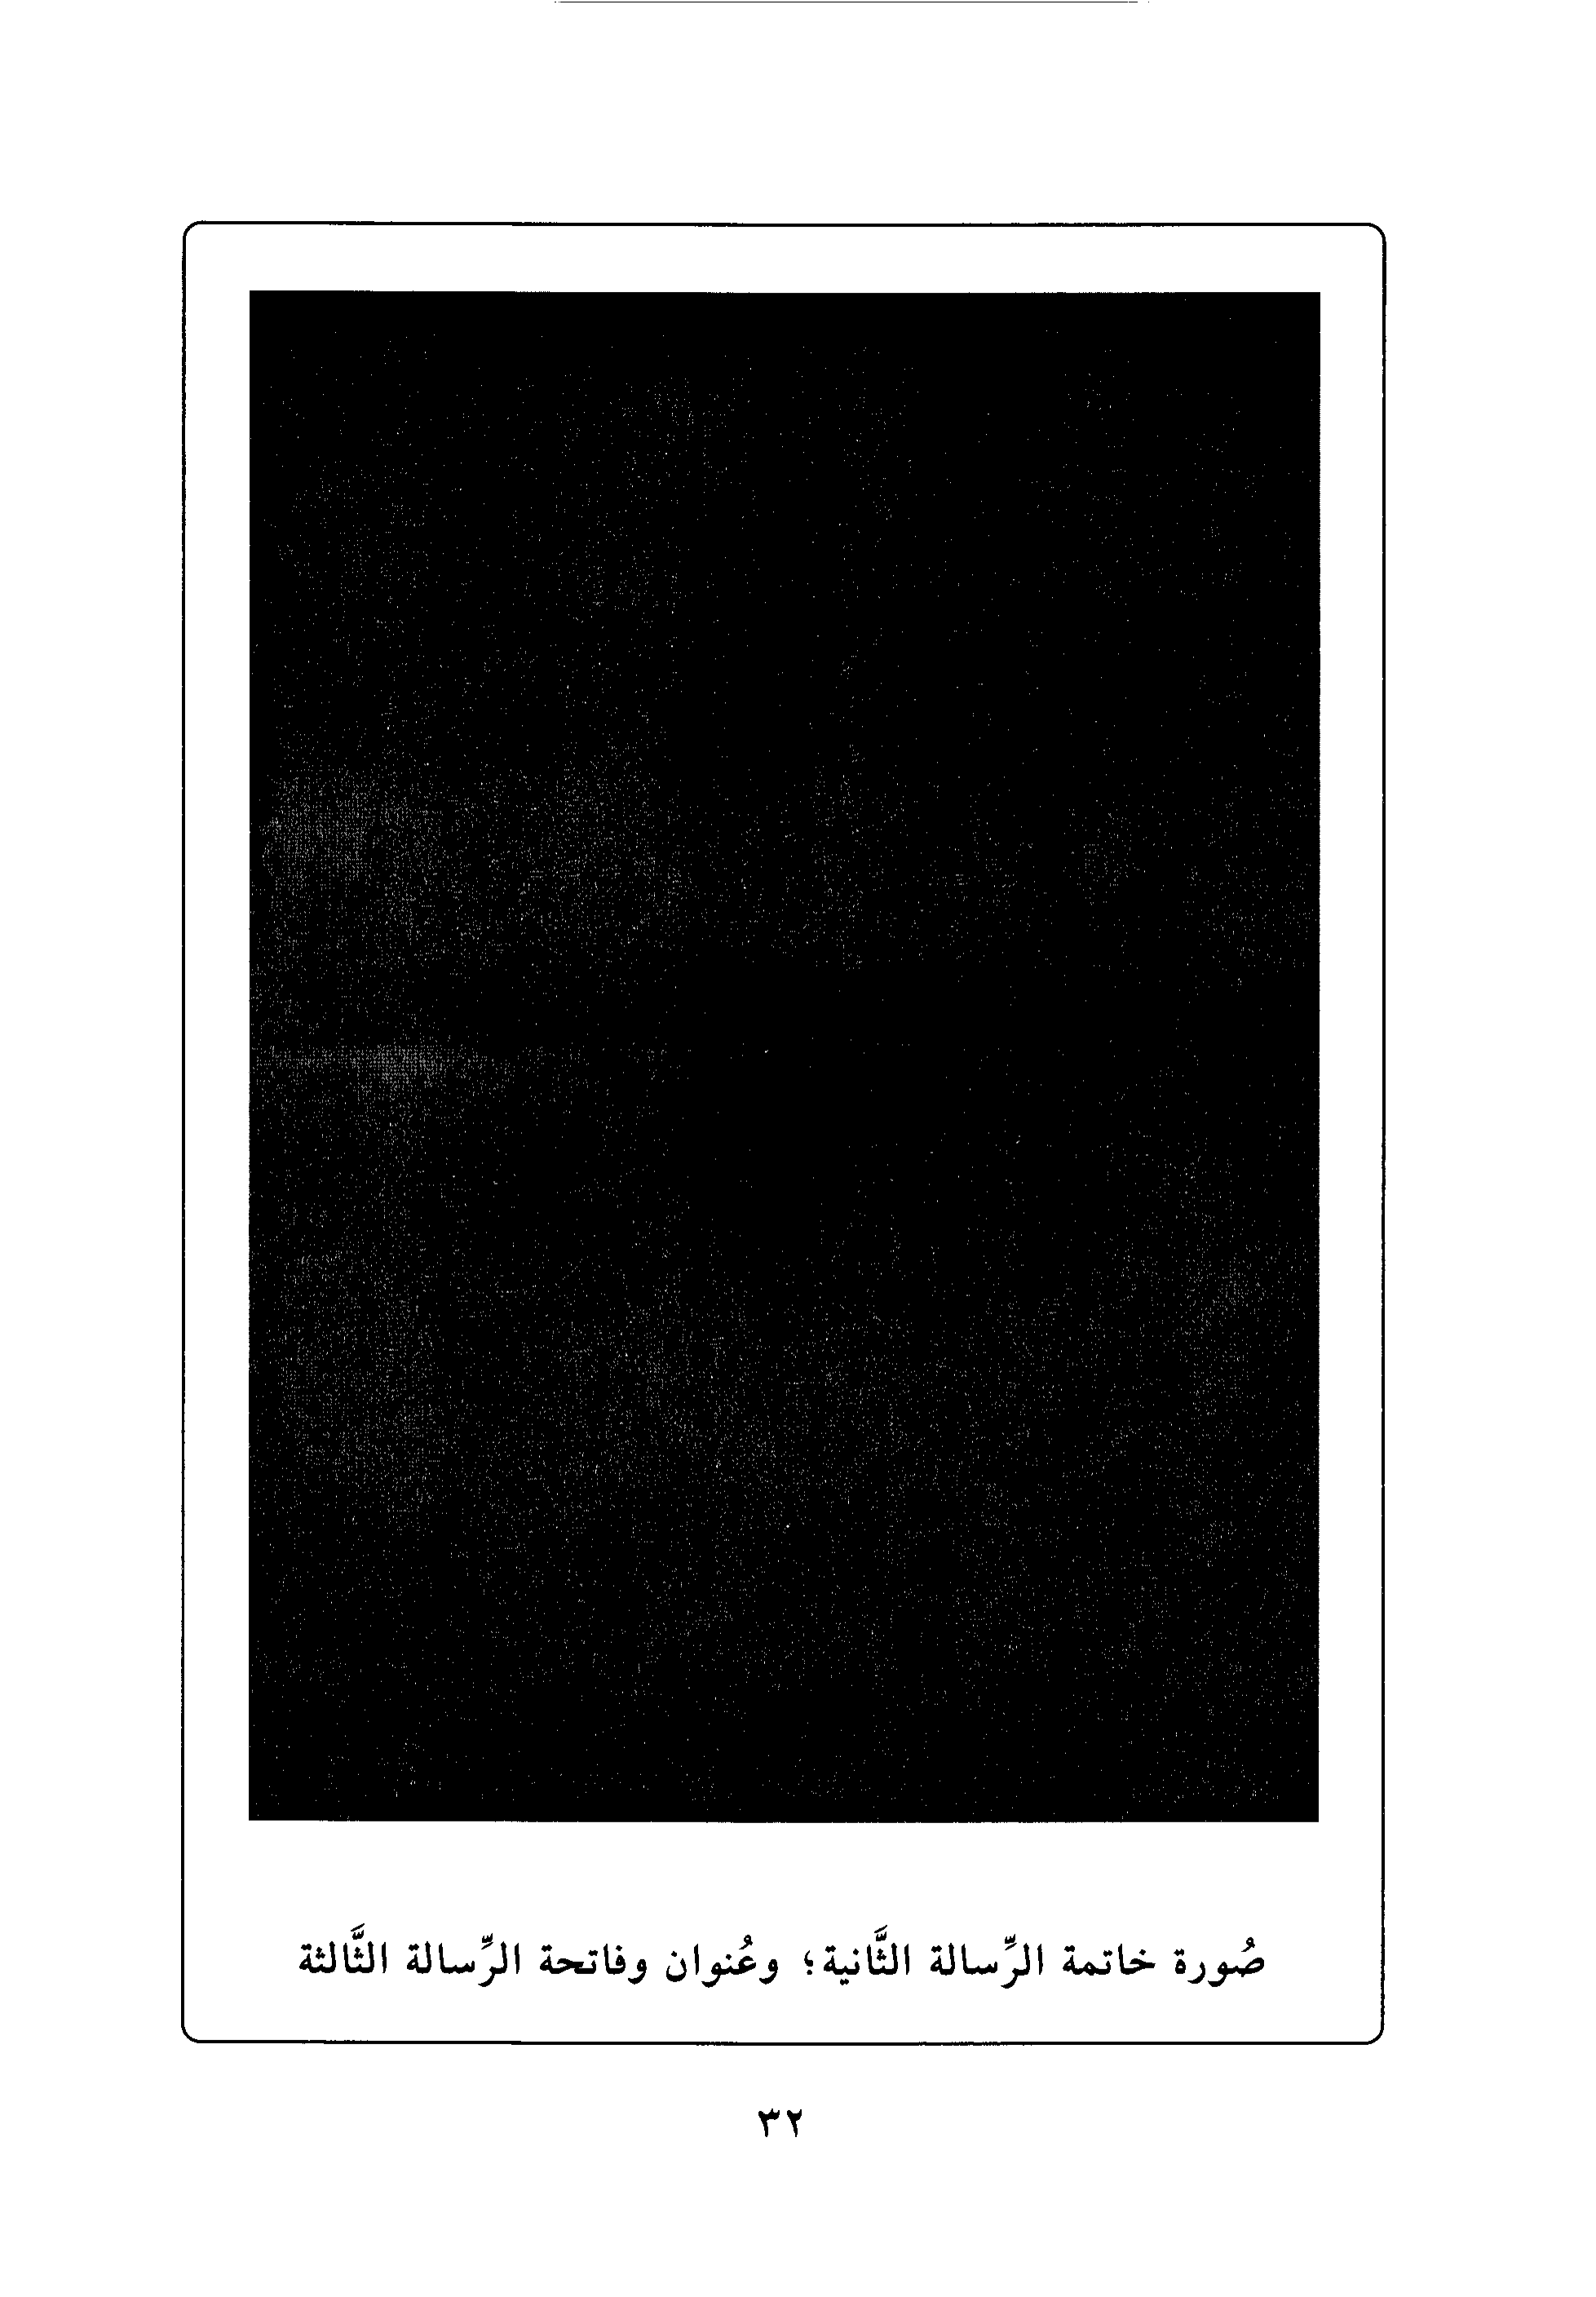 صُورة خاتمة الرِّسالة الثَّانية؛ وعُنوان وفاتحة الرِّسالة الثَّالثة
٣٢